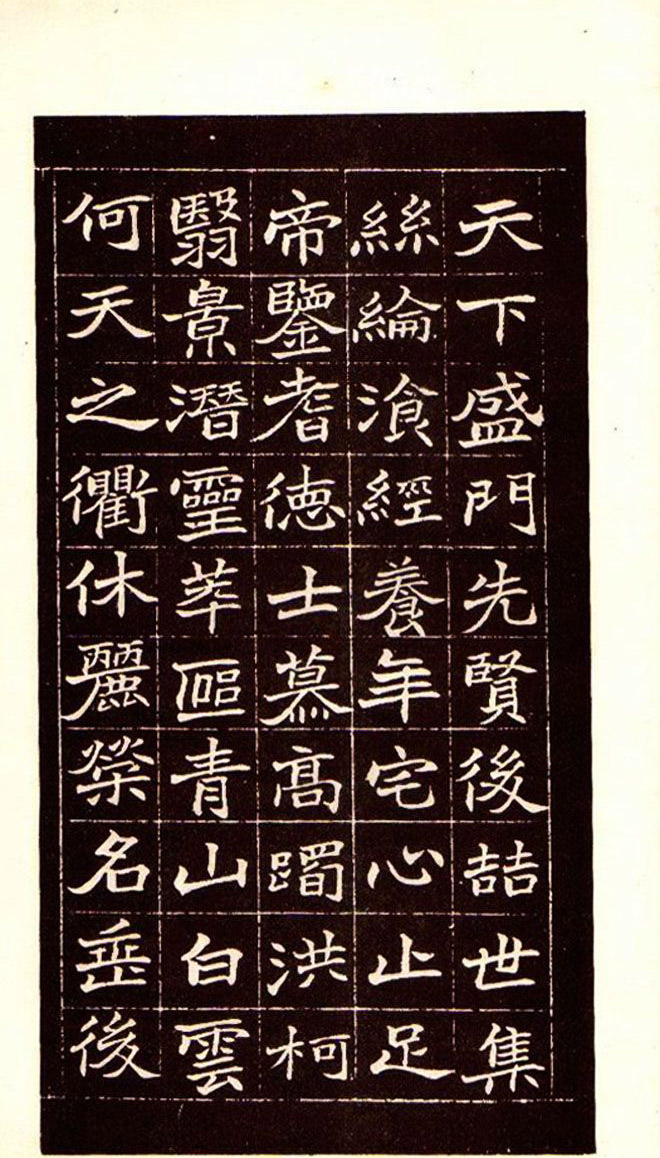 天下盛門先賢後喆世集
絲綸飡經養年宅心止足
帝鑒耆德士慕高躅洪柯
翳景潛靈萃區青山白雲
何天之衢休麗榮名垂後